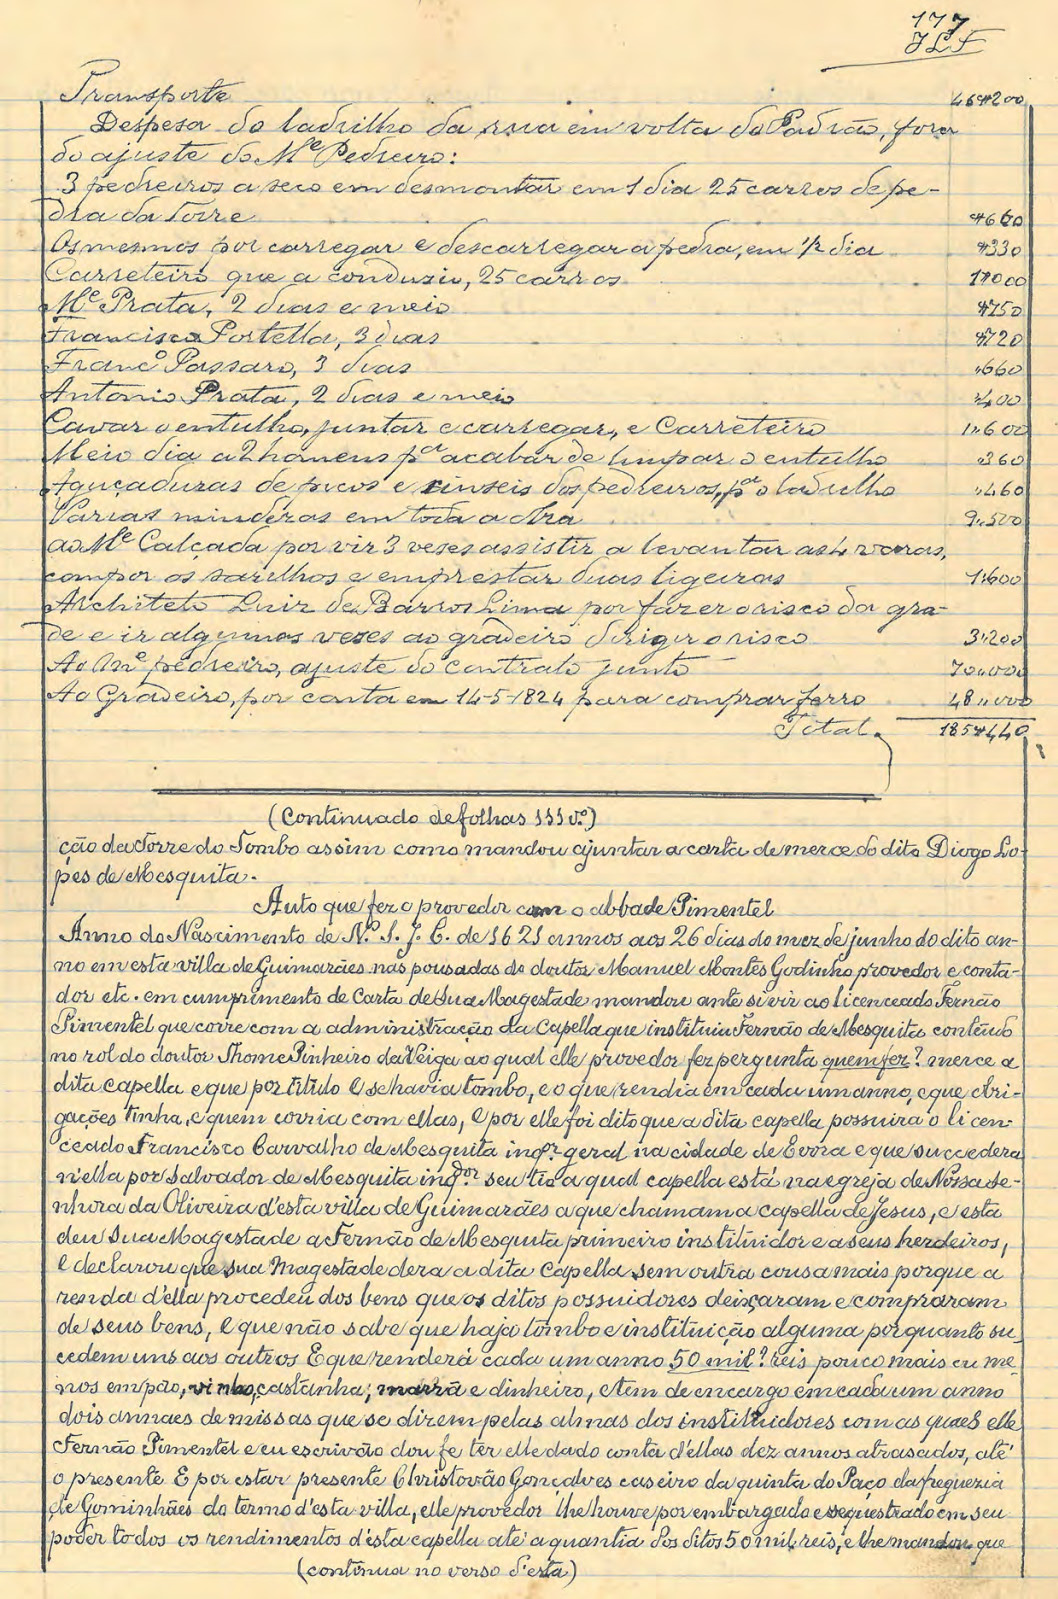 177
JLF
Transporte 46#200
Despesa do ladrilho da roca em volta do Padrão, fora
do ajuste do Mᵉ Pedreiro:
3 pedreiros a seco em desmontar em 1 dia 25 carros de pe-
dra da Torre #660
Os mesmos por carregar e descarregar a pedra, em 1/2 dia #330
Carreteiro que a conduziu, 25 carros 1#000
Mᵉ Prata, 2 dias e meio #750
Francisco Portella, 3 dias #720
Francº Passaro, 3 dias "660
Antonio Prata, 2 dias e meio "400
Cavar o entulho, juntar e carregar, e Carreteiro 1"600
Meio dia a 2 homens pª acabar de limpar o entulho "360
Aguçaduras de picos e sinseis dos pedreiros, pª o ladrilho "460
Varias minderas em toda a obra 9"500
ao Mᵉ Calçada por vir 3 veses assistir a levantar as 4 varas,
compor os sarilhos e emprestar duas ligeiras 1"600
Architeto Luiz de Barros Lima por fazer o risco da gra-
de e ir algumas veses ao gradeiro dirigir o risco 3"200
Ao Mᵉ pedreiro, ajuste do contrato junto 70"000
Ao Gradeiro, por conta em 14-5-1824 para comprar ferro 48"000
Total. 185#440
(Continuado de folhas 111 vº)
ção da Torre do Tombo assim como mandou ajuntar a carta de merce do dito Diogo Lo-
pes de Mesquita.
Auto que fez o provedor com o abbade Pimentel
Anno do Nascimento de N. S. J. C. de 1621 annos aos 26 dias do mez de junho do dito an-
no em esta villa de Guimarães nas pousadas do doutor Manuel Montes Godinho provedor e conta-
dor etc. em cumprimento de Carta de Sua Magestade mandou ante si vir ao licenceado Fernão
Pimentel que corre com a administração da Capella que instituiu Fernão de Mesquita contêudo
no rol do doutor Thome Pinheiro da Veiga ao qual elle provedor fez pergunta quem fez? merce a
dita capella e que por titulo e se havia tombo, e o que rendia em cada um anno, e que obri-
gações tinha, e quem corria com ellas, e por elle foi dito que a dita capella possuira o licen-
ceado Francisco Carvalho de Mesquita inqºʳ geral na cidade de Evora e que succedera
n'ella por Salvador de Mesquita inqᵈᵒʳ seu tio a qual capella está na egreja de Nossa Se-
nhora da Oliveira d'esta villa de Guimarães a que chamam a capella de Jesus, e esta
deu Sua Magestade a Fernão de Mesquita primeiro instituidor e a seus herdeiros,
e declarou que sua Magestade dera a dita Capella sem outra cousa mais porque a
renda d'ella procedeu dos bens que os ditos possuidores deixaram e compraram
de seus bens, e que não sabe que haja tombo e instituição alguma porquanto su-
cedem uns aos outros E que renderá cada um anno 50 mil? reis pouco mais ou me-
nos em pão, vinho, castanha, marrã e dinheiro, e tem de encargo em cada um anno
dois annaes de missas que se dizem pelas almas dos instituidores com as quaes elle
Fernão Pimentel e eu escrivão dou fe ter elle dado conta d'ellas dez annos atrasados, até
o presente E por estar presente Christovão Gonçalves caseiro da quinta do Paço da freguezia
de Gominhães do termo d'esta villa, elle provedor lhe houve por embargado e sequestrado em seu
poder todos os rendimentos d'esta capella até a quantia dos ditos 50 mil reis, e lhe mandou que
(continua no verso d'esta)